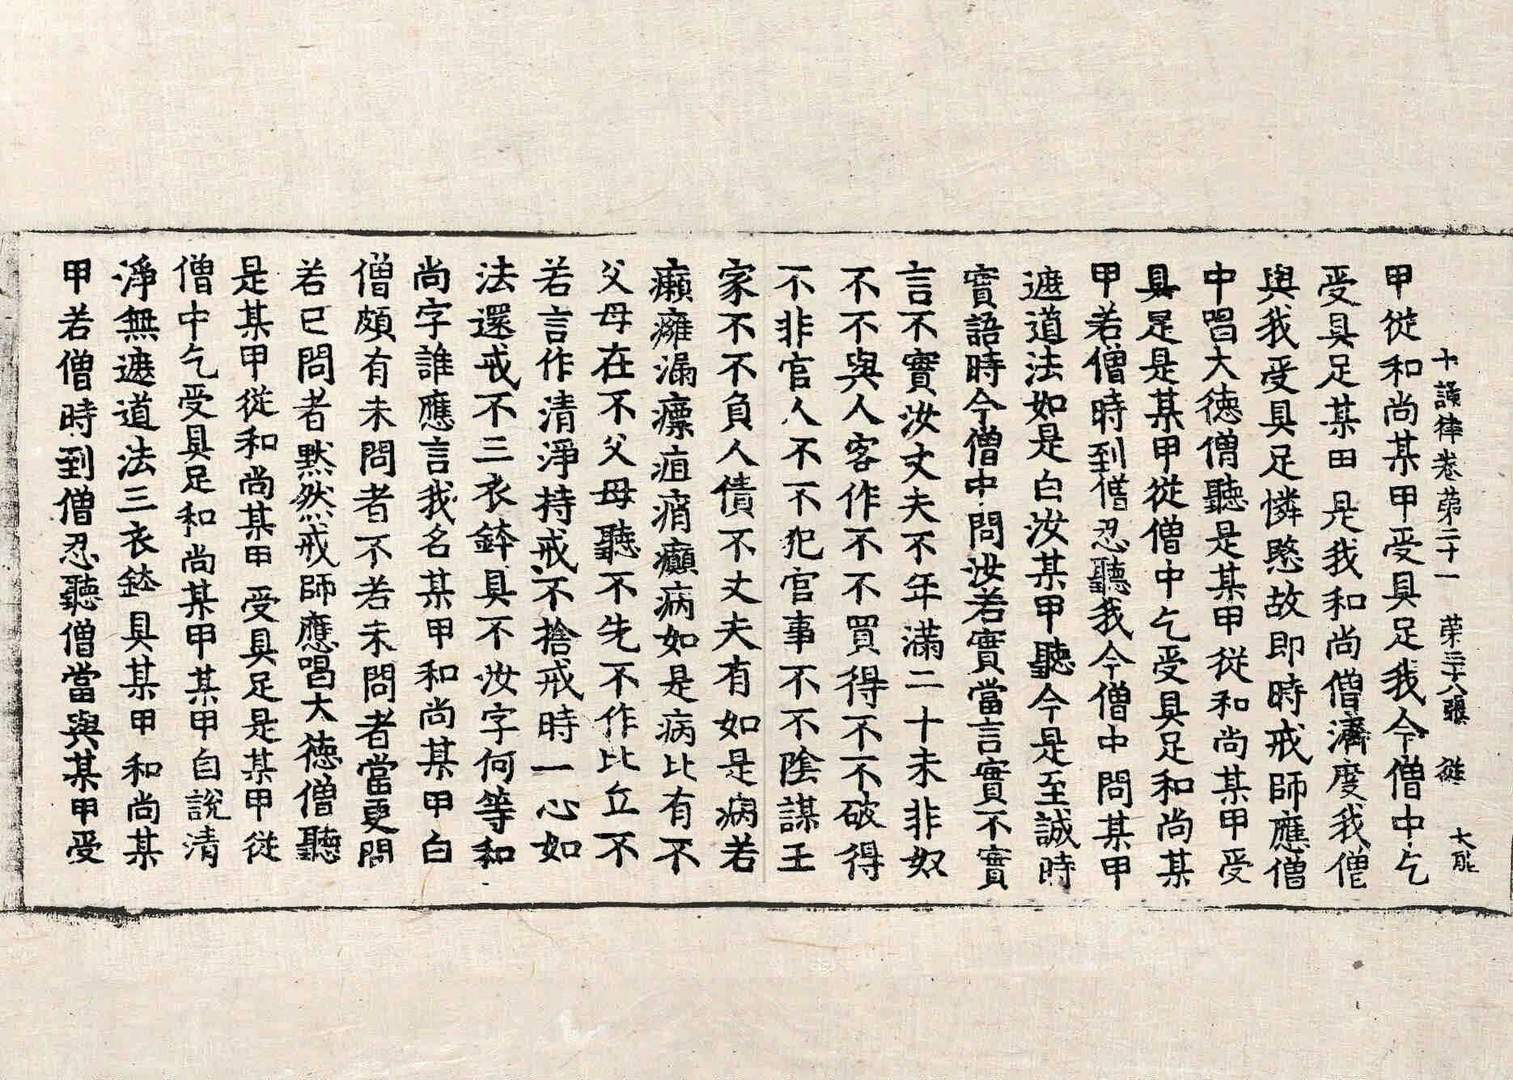 十誦律卷第二十一 第三十八張 從 大能
甲從和尚某甲受具足我今僧中乞
受具足某甲是我和尚僧濟度我僧
與我受具足憐愍故即時戒師應僧
中唱大德僧聽是某甲從和尚某甲受
具足是某甲從僧中乞受具足和尚某
甲若僧時到僧忍聽我今僧中問某甲
遮道法如是白汝某甲聽今是至誠時
實語時今僧中問汝若實當言實不實
言不實汝丈夫不年滿二十未非奴
不不與人客作不不買得不不破得
不非官人不不犯官事不不陰謀王
家不不負人債不丈夫有如是病若
癩癰漏瘭疽痟癲病如是病比有不
父母在不父母聽不先不作比丘不
若言作清淨持戒不捨戒時一心如
法還戒不三衣鉢具不汝字何等和
尚字誰應言我名某甲和尚某甲白
僧頗有未問者不若未問者當更問
若已問者默然戒師應唱大德僧聽
是某甲從和尚某甲受具足是某甲從
僧中乞受具足和尚某甲某甲自說清
淨無遮道法三衣鉢具某甲和尚某
甲若僧時到僧忍聽僧當與某甲受